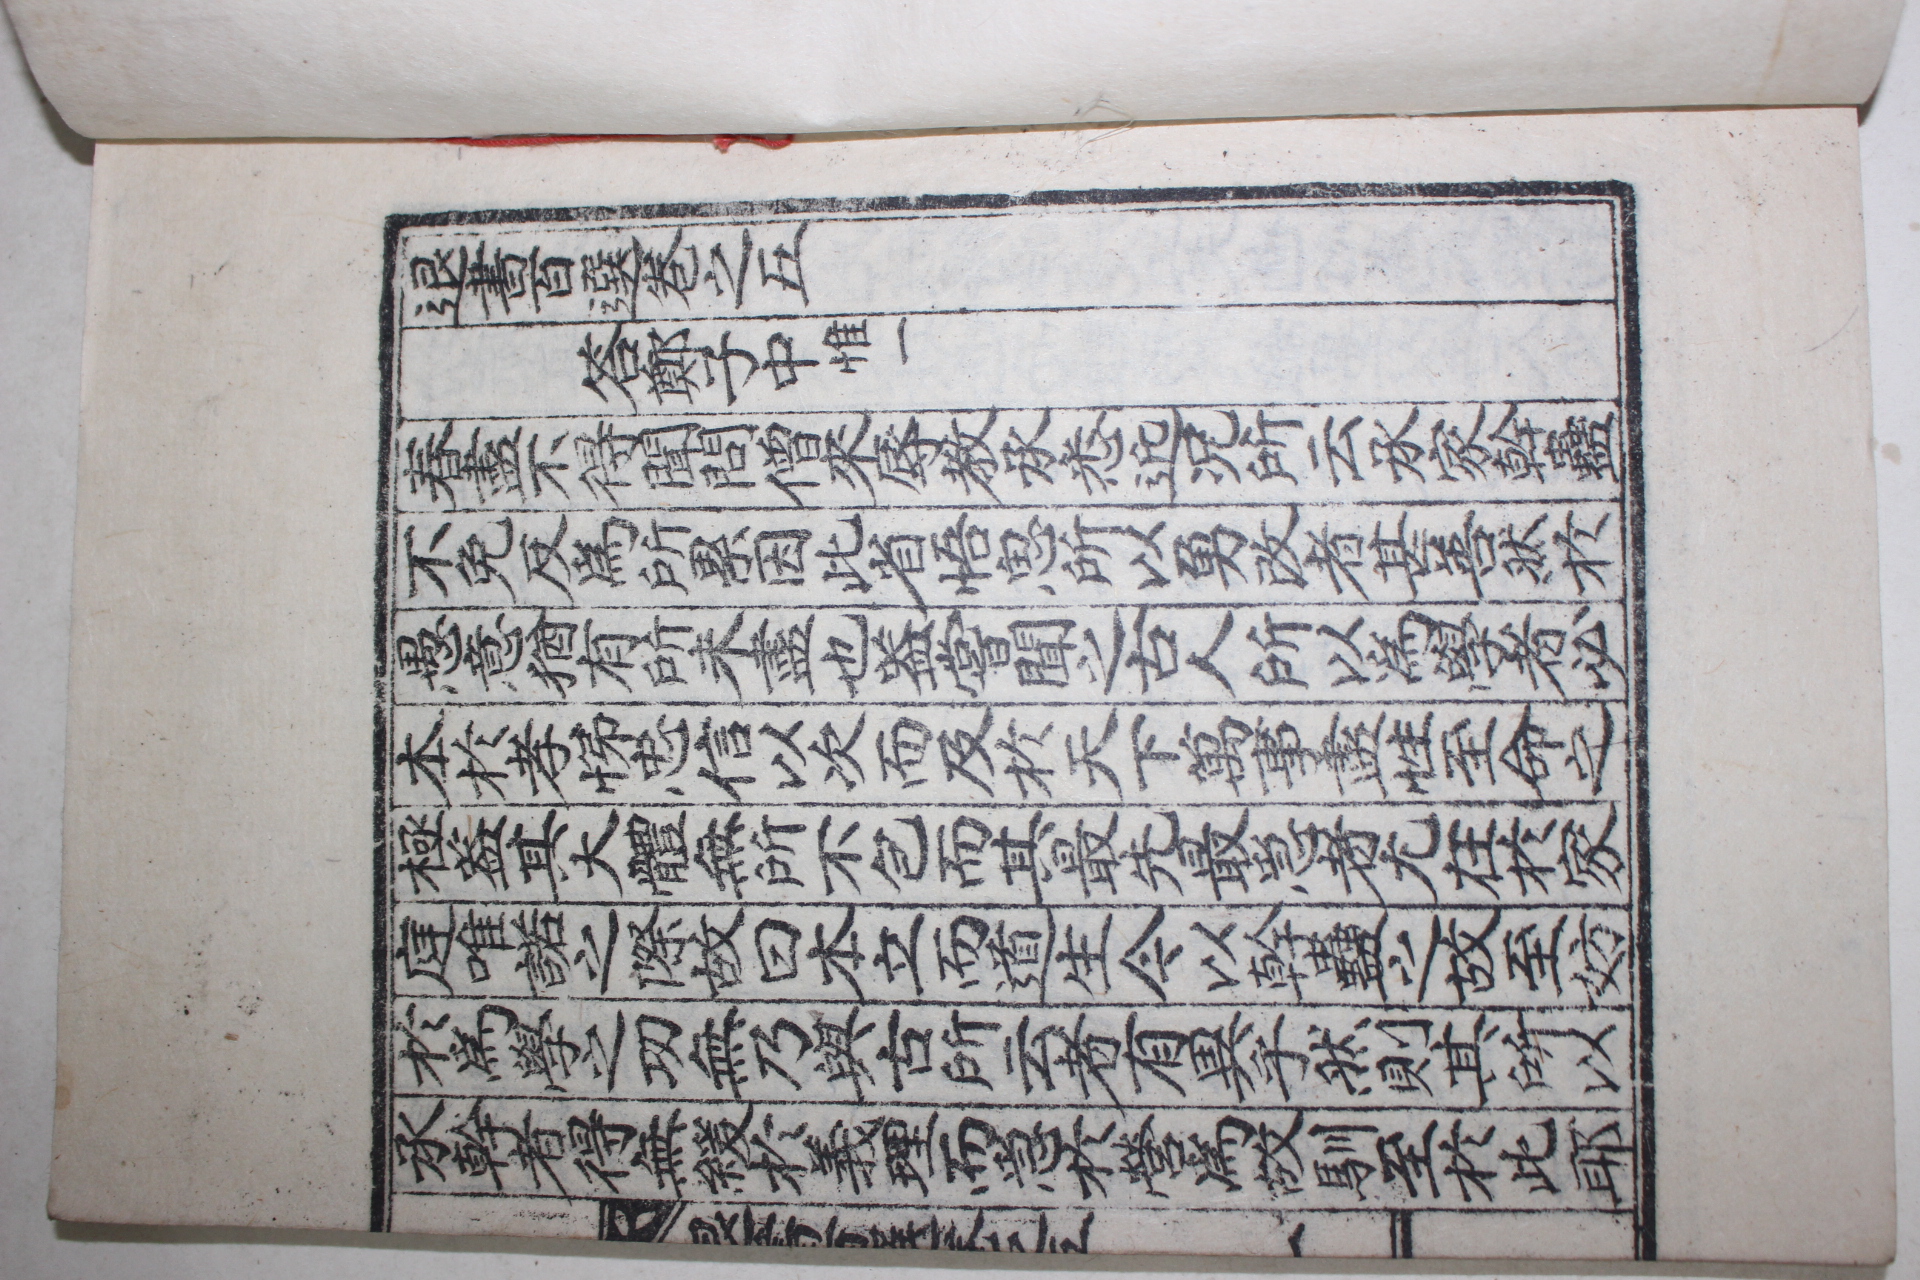 退書百選卷之五
答鄭子中 惟一
春盡不得聞問僧來辱敎承悉近況所云承家幹蠱
不免反爲所累因此省悟思所以勇改者甚善然於
愚意猶有所未盡也葢嘗聞之古人所以爲學者必
本於孝悌忠信以次而及於天下萬事盡性至命之
極葢其大體無所不包而其最先最急者尤在於家
庭唯諾之際故曰本立而道生今以幹蠱之故至妨
於爲學之功無乃與古所云者有異乎然則其所以
承幹者得無緩於義理而急於營爲故馴至於此耶
退書百選卷之五
一